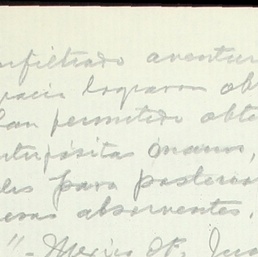 nfiltrado aventur
gracia lograron ob
han permitido obte
nterpósitas manos,
les para posterio
esas absorventes.
"- Mexico, Df. Ju